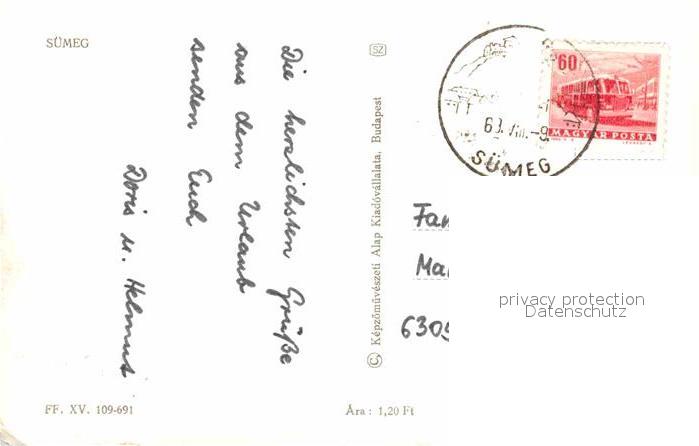 SÜMEG
Die herzlichsten Grüße
aus dem Urlaub
senden Euch
Doris u. Helmut
FF. XV. 109-691
SZ
© Képzőművészeti Alap Kiadóvállalata, Budapest
Ára: 1,20 Ft
60f
MAGYAR POSTA
SÜMEG
Fam
Ma
6305
privacy protection
Datenschutz